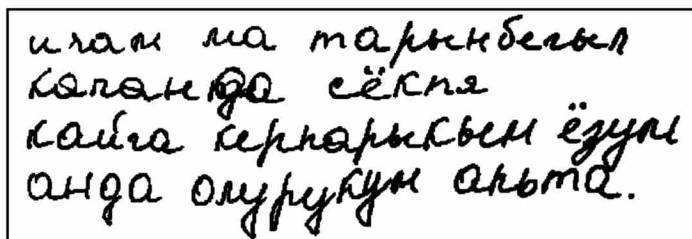 ичам ма тарынбегыл
качанда сёкпя
кайга керпарыкьем ёзум
анда олурукум апьта.